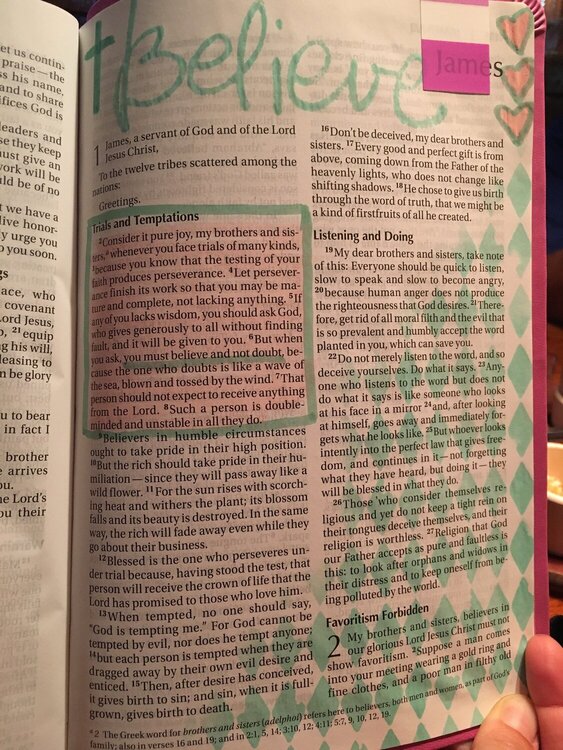 et us contin-
praise—the
ss his name,
and to share
ifices God is
leaders and
se they keep
ust give an
work will be
uld be of no
t we have a
live honor-
ly urge you
o you soon.
gs
ace, who
covenant
ord Jesus,
p, 21 equip
ng his will,
leasing to
n be glory
u to bear
in fact I
brother
e arrives
ou.
he Lord's
ou their
†Believe
James
1 James, a servant of God and of the Lord
Jesus Christ,
To the twelve tribes scattered among the
nations:
Greetings.
Trials and Temptations
2 Consider it pure joy, my brothers and sis-
ters,a whenever you face trials of many kinds,
3 because you know that the testing of your
faith produces perseverance. 4 Let persever-
ance finish its work so that you may be ma-
ture and complete, not lacking anything. 5 If
any of you lacks wisdom, you should ask God,
who gives generously to all without finding
fault, and it will be given to you. 6 But when
you ask, you must believe and not doubt, be-
cause the one who doubts is like a wave of
the sea, blown and tossed by the wind. 7 That
person should not expect to receive anything
from the Lord. 8 Such a person is double-
minded and unstable in all they do.
9 Believers in humble circumstances
ought to take pride in their high position.
10 But the rich should take pride in their hu-
miliation—since they will pass away like a
wild flower. 11 For the sun rises with scorch-
ing heat and withers the plant; its blossom
falls and its beauty is destroyed. In the same
way, the rich will fade away even while they
go about their business.
12 Blessed is the one who perseveres un-
der trial because, having stood the test, that
person will receive the crown of life that the
Lord has promised to those who love him.
13 When tempted, no one should say,
"God is tempting me." For God cannot be
tempted by evil, nor does he tempt anyone;
14 but each person is tempted when they are
dragged away by their own evil desire and
enticed. 15 Then, after desire has conceived,
it gives birth to sin; and sin, when it is full-
grown, gives birth to death.
16 Don't be deceived, my dear brothers and
sisters. 17 Every good and perfect gift is from
above, coming down from the Father of the
heavenly lights, who does not change like
shifting shadows. 18 He chose to give us birth
through the word of truth, that we might be
a kind of firstfruits of all he created.
Listening and Doing
19 My dear brothers and sisters, take note
of this: Everyone should be quick to listen,
slow to speak and slow to become angry,
20 because human anger does not produce
the righteousness that God desires. 21 There-
fore, get rid of all moral filth and the evil that
is so prevalent and humbly accept the word
planted in you, which can save you.
22 Do not merely listen to the word, and so
deceive yourselves. Do what it says. 23 Any-
one who listens to the word but does not
do what it says is like someone who looks
at his face in a mirror 24 and, after looking
at himself, goes away and immediately for-
gets what he looks like. 25 But whoever looks
intently into the perfect law that gives free-
dom, and continues in it—not forgetting
what they have heard, but doing it—they
will be blessed in what they do.
26 Those who consider themselves re-
ligious and yet do not keep a tight rein on
their tongues deceive themselves, and their
religion is worthless. 27 Religion that God
our Father accepts as pure and faultless is
this: to look after orphans and widows in
their distress and to keep oneself from be-
ing polluted by the world.
Favoritism Forbidden
2 My brothers and sisters, believers in
our glorious Lord Jesus Christ must not
show favoritism. 2 Suppose a man comes
into your meeting wearing a gold ring and
fine clothes, and a poor man in filthy old
a 2 The Greek word for brothers and sisters (adelphoi) refers here to believers, both men and women, as part of God's
family; also in verses 16 and 19; and in 2:1, 5, 14; 3:10, 12; 4:11; 5:7, 9, 10, 12, 19.